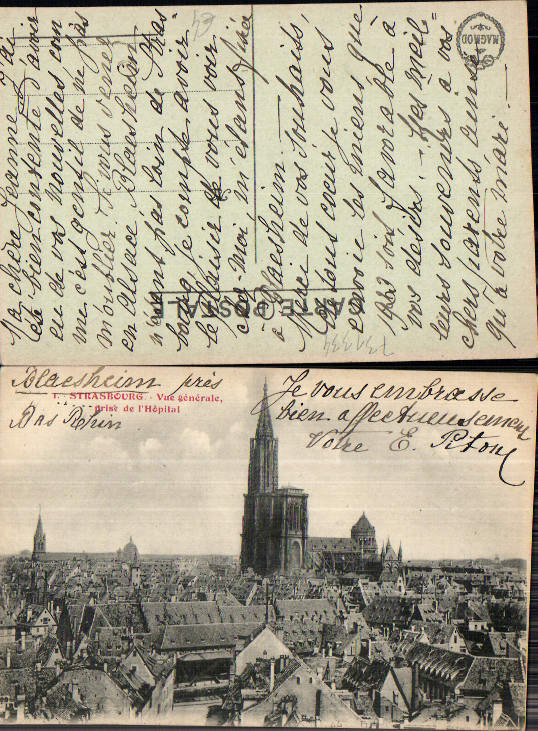 Ma chère Jeanne J'ai
été bien contente d'avoir
eu de vos nouvelles com
me c'est gentil de ne pas
m'oublier. Si vous venez
en Alsace, Blaesheim
n'étant pas loin de Stras
bourg, je compte avoir
le plaisir de vous voir
chez moi, m'étant fixée
à Blaesheim. —
Merci de vos souhaits,
de tout cœur je vous
envoie les miens que
soit favorable à
vos désirs. - Mes meil
leurs souvenirs à vos
chers parents ainsi
qu'à votre mari. —
CARTE POSTALE
MAGMOD
Blaesheim près
Bas Rhin
1. - STRASBOURG - Vue générale,
prise de l'Hôpital
Je vous embrasse
bien affectueusement
Votre E. Piton